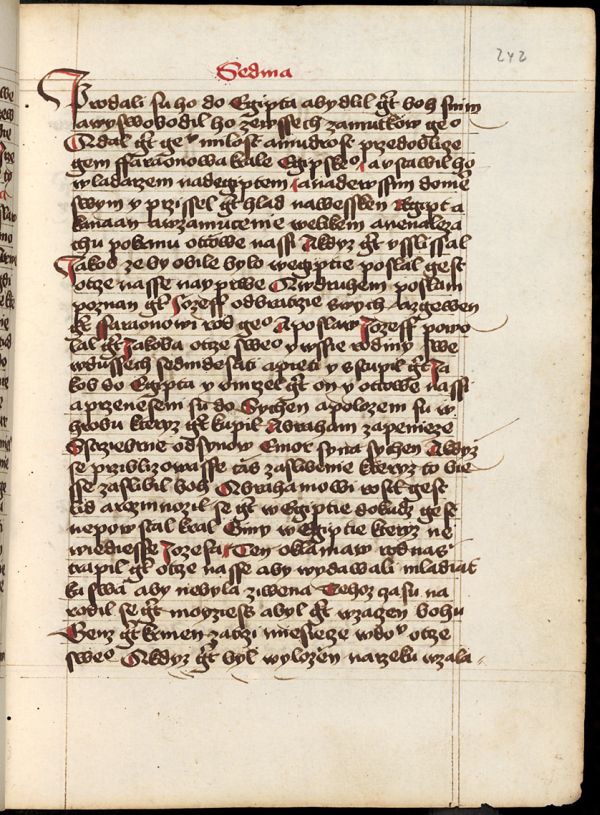 242
Sedma
Prodali su ho do Egipta abydlil gt boh snim
awyswobodil ho zewssech zamutkow geo
Adal gt geu milost amudrost przedoblicze
gem ffaraonowa krale Egipskeo austawil ho
wladarzem nadegiptem anadewssim dome
swym y przissel gt hlad nawessken Egipt a
kanaan azamucenie welikem anenaleza
chu pokrmu otcowe nassi Akdyz gt usslissal
Jakob zeby obile bylo wegiptie poslal gest
otcze nasse nayprwe Awdruhem poslani
poznan gt Jozeff odbratrzie swych azgewen
gt ffaraonowi rod geo Aposlaw Jozeff powo
lal gt Jakoba otcze sweo y wssie rodiny swe
wdussech sedmdesati apieti y sstupil gt Ja
kob do Egipta y umrzel gt on y otcowe nassi
aprzenesem su do Sychen apolozem su w
hrobu kteryz gt kupil Abraham zapenieze
Strziebrne odsynow Emor syna sychen Akdyz
se prziblizowasse czas zaslibenie kteryz to bie
sse zaslibil boh Abrahamowi rostl gest
lid arozmnozil se gt wEgiptie dokudz gest
nepowstal kral Giny wEgiptie kteryz ne
wiediesse Jozefa Ten oklamaw rod nas
trapil gt otcze nasse aby wydawali mladiat
ka swa aby nebyla ziwena Tehoz czasu na
rodil se gt moyziess abyl gt wzacen bohu
Genz gt krmen za trzi miesiecze wdou otcze
sweo Akdyz gt byl wylozen narzeku wzala